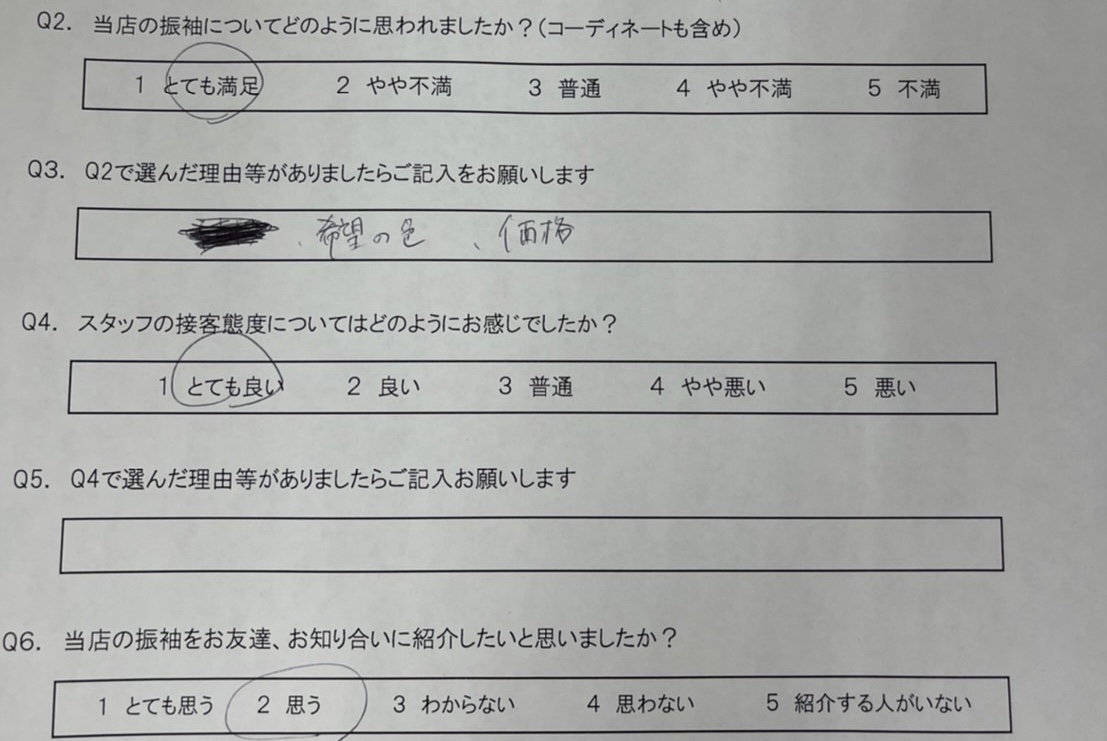 Q2. 当店の振袖についてどのように思われましたか？(コーディネートも含め)
1 とても満足 2 やや不満 3 普通 4 やや不満 5 不満
Q3. Q2で選んだ理由等がありましたらご記入をお願いします
、希望の色 、価格
Q4. スタッフの接客態度についてはどのようにお感じでしたか？
1 とても良い 2 良い 3 普通 4 やや悪い 5 悪い
Q5. Q4で選んだ理由等がありましたらご記入お願いします
Q6. 当店の振袖をお友達、お知り合いに紹介したいと思いましたか？
1 とても思う 2 思う 3 わからない 4 思わない 5 紹介する人がいない